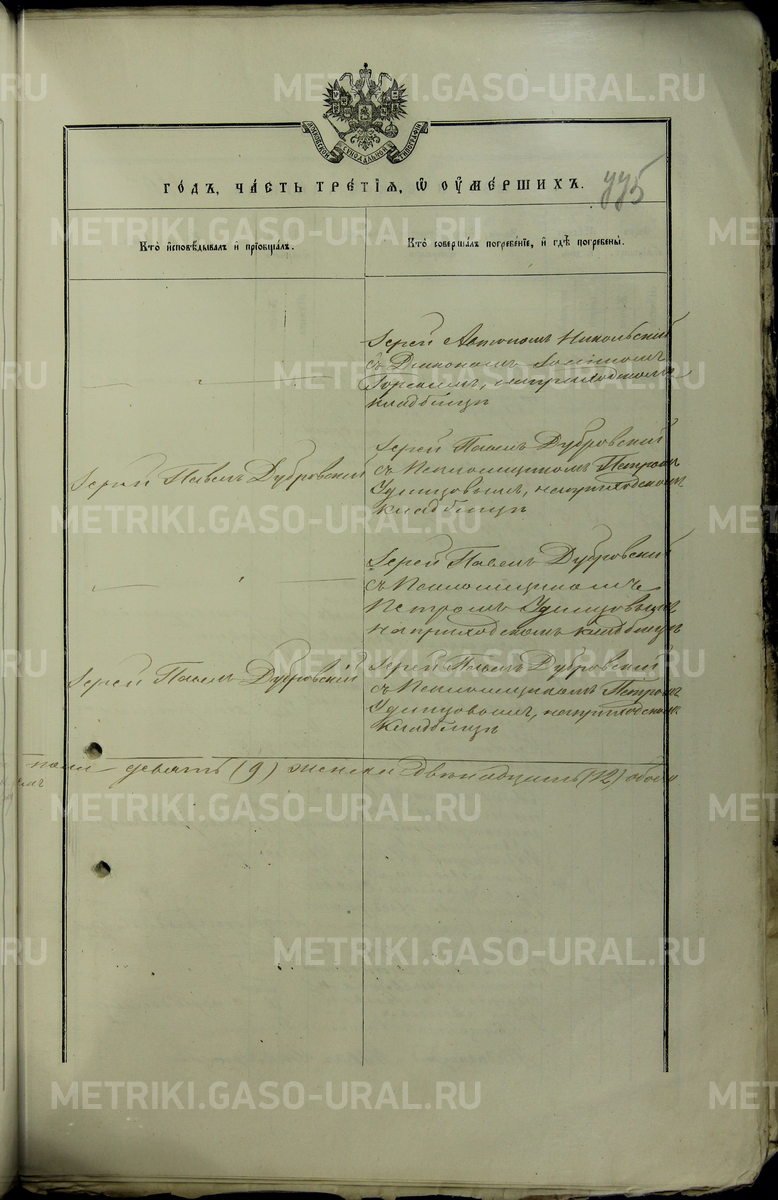 МОСКОВСКОЙ СѴНОДАЛЬНОЙ ТИПОГРАФІИ
ГО́ДЪ, ЧА́СТЬ ТРЕ́ТІЯ, Ѡ҆ ОУ҆МЕ́РШИХЪ.
775
Кто̀ и҆сповѣ́дывалъ и҆ прїѡбща́лъ.
Кто̀ соверша́лъ погребе́нїе, и҆ гдѣ̀ погребены̀.
Іерей Автономъ Никольский
съ Діакономъ
на приходскомъ
кладбищѣ
Іерей Павелъ Дубровский
Іерей Павелъ Дубровский
съ Псаломщикомъ Петромъ
Удинцовымъ, на приходскомъ
кладбищѣ
Іерей Павелъ Дубровский
съ Псаломщикомъ
Петромъ Удинцовымъ
на приходскомъ кладбищѣ
Іерей Павелъ Дубровский
Іерей Павелъ Дубровский
съ Псаломщикомъ Петромъ
Удинцовымъ, на приходскомъ
кладбищѣ
пола девять (9) женска двѣнадцать (12) обоего
METRIKI.GASO-URAL.RU